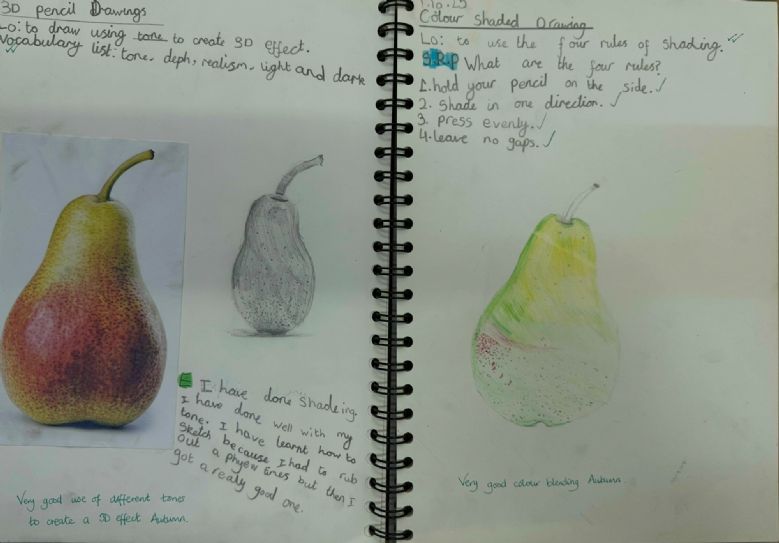 3D pencil Drawings
Lo: to draw using tone to create 3D effect.
Vocabulary list: tone, deph, realism, light and dark
E I have done shadeing.
I have done well with my
tone. I have learnt how to
sketch because I had to rub
out a phyew lines but then I
got a realy good one.
Very good use of different tones
to create a 3D effect Autumn.
Colour Shaded Drawing
Lo: to use the four rules of shading.
S.R.P What are the four rules?
1. hold your pencil on the side.
2. Shade in one direction.
3. press evenly.
4. leave no gaps.
Very good colour blending Autumn.